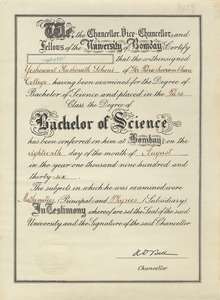 We, the Chancellor, Vice-Chancellor, and
Fellows of the University of Bombay, Certify
that the undersigned
Yeshwant
College, having been examined for the Degree of
Bachelor of Science and placed in the Pass
Class the Degree of
Bachelor of Science
has been conferred on him at Bombay on the
eighteenth day of the month of August
in the year one thousand nine hundred and
thirty-six.
The subjects in which he was examined were
Mathematics (Principal) and Physics (Subsidiary)
In Testimony whereof are set the Seal of the said
University and the Signature of the said Chancellor
Chancellor